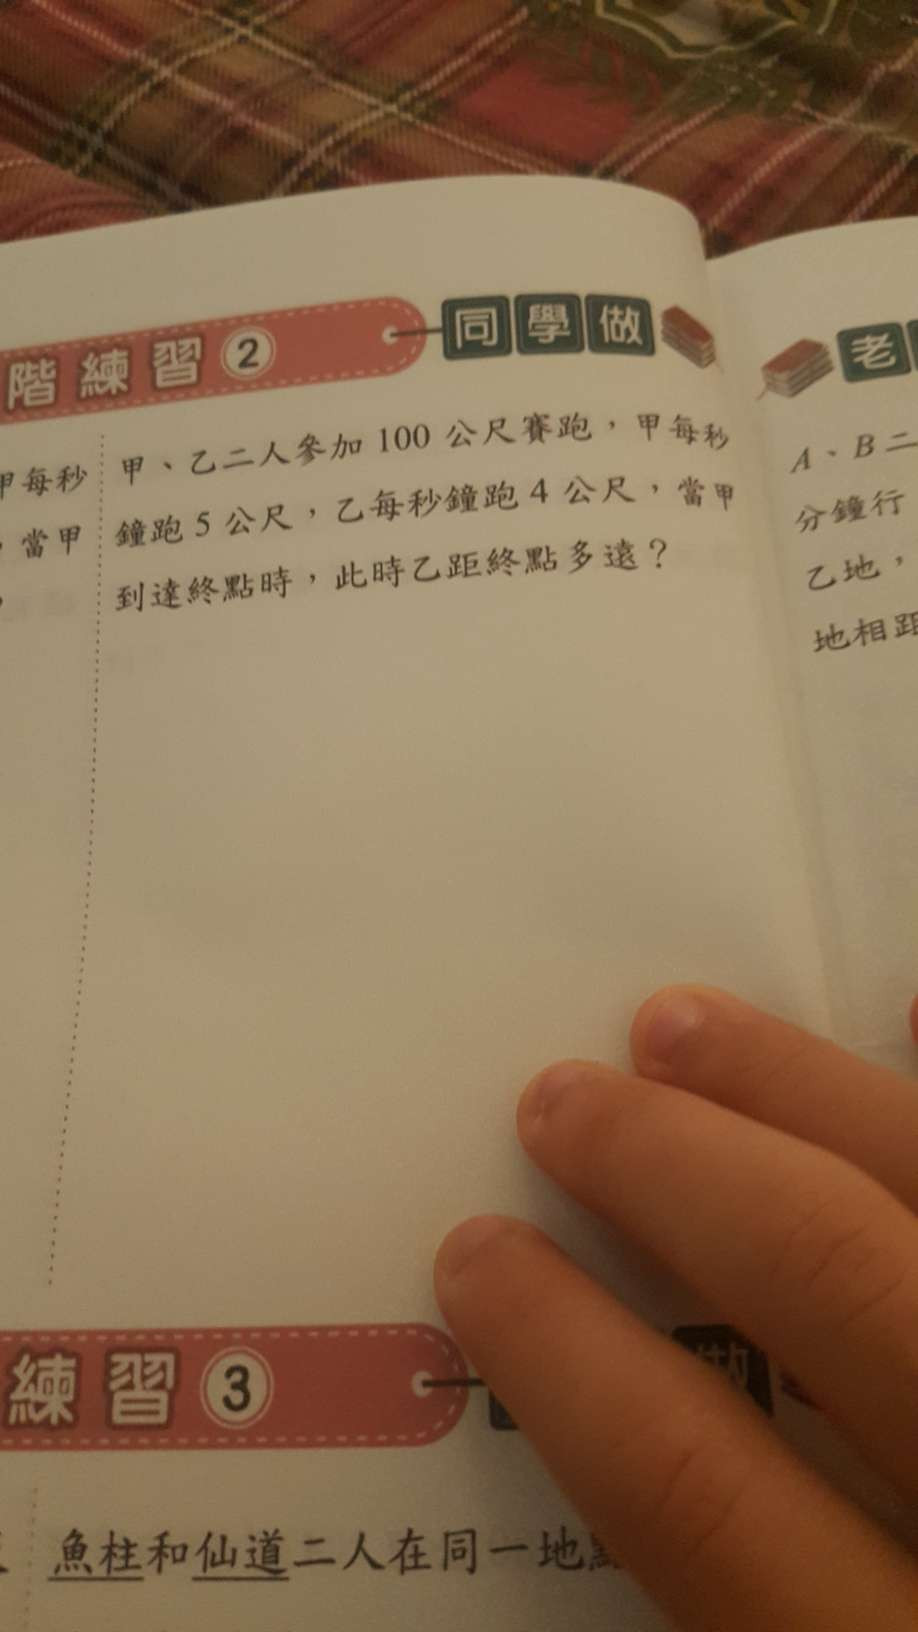 階練習2 同學做
甲、乙二人參加 100 公尺賽跑，甲每秒
鐘跑 5 公尺，乙每秒鐘跑 4 公尺，當甲
到達終點時，此時乙距終點多遠？
甲每秒
，當甲
老
A、B 二
分鐘行
乙地，
地相距
練習3 做
魚柱和仙道二人在同一地點